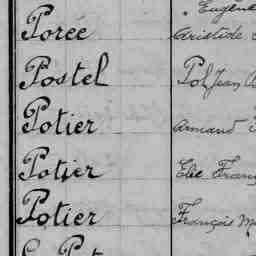 Eugène
Porée Aristide
Postel Pol Jean
Potier Armand
Potier Elie
Potier François